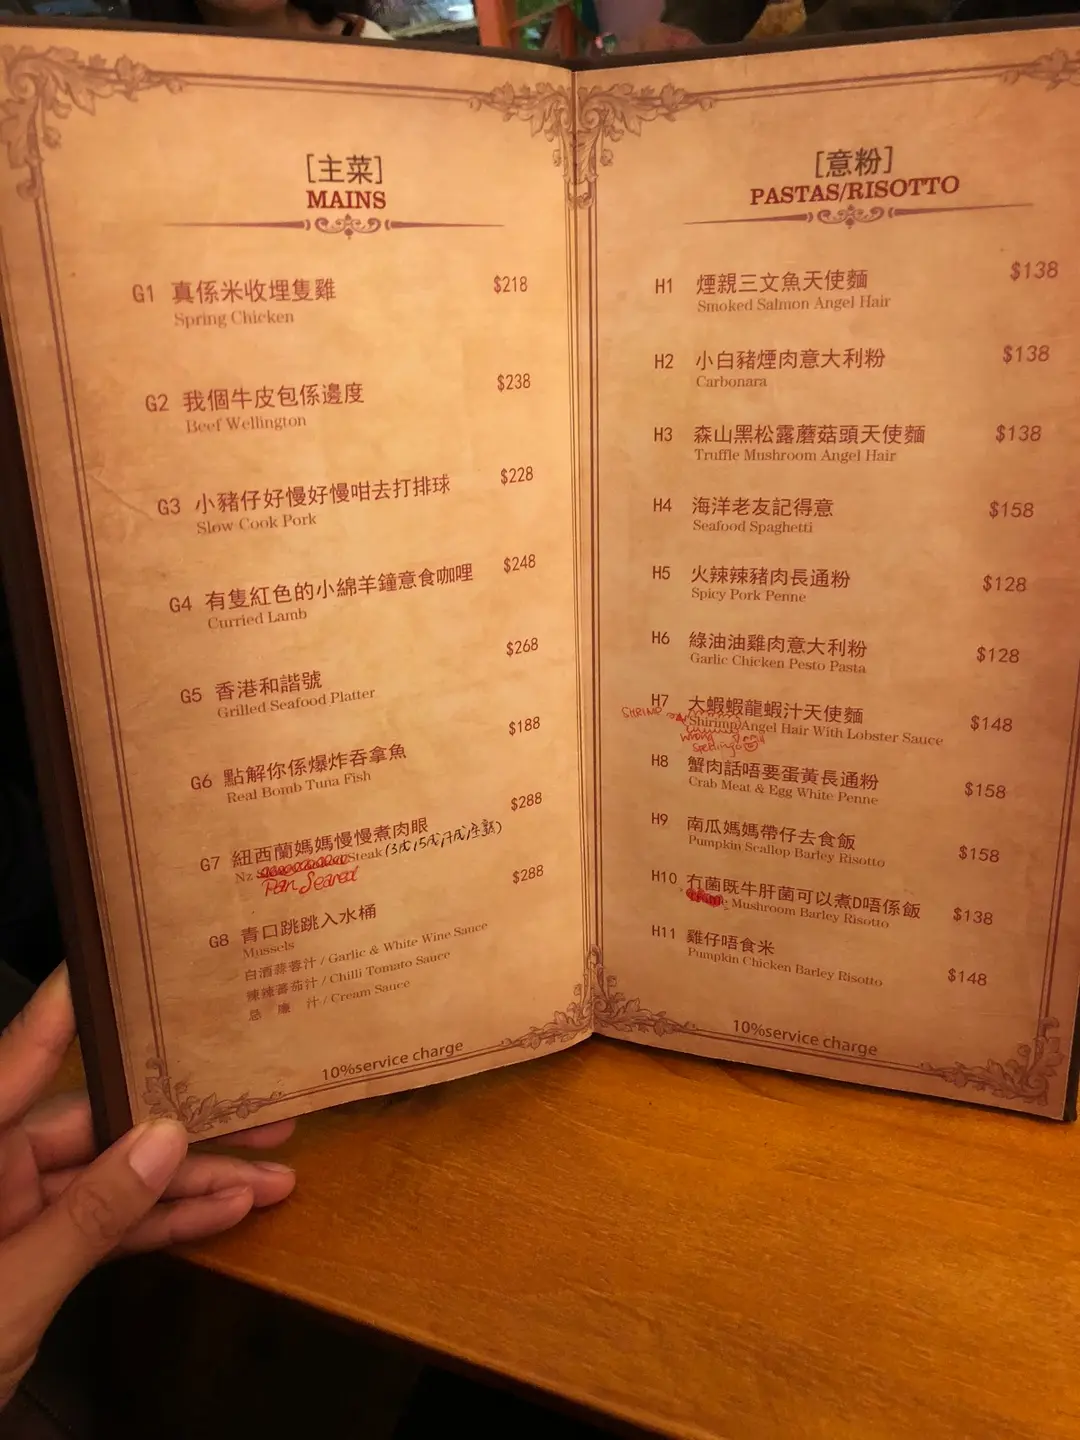 [主菜]
MAINS
G1 真係米收埋隻雞 $218
Spring Chicken
G2 我個牛皮包係邊度 $238
Beef Wellington
G3 小豬仔好慢好慢咁去打排球 $228
Slow Cook Pork
G4 有隻紅色的小綿羊鐘意食咖哩 $248
Curried Lamb
G5 香港和諧號 $268
Grilled Seafood Platter
G6 點解你係爆炸吞拿魚 $188
Real Bomb Tuna Fish
G7 紐西蘭媽媽慢慢煮肉眼 $288
Nz Steak (3成,5成,7成,全熟)
Pan Seared
G8 青口跳跳入水桶 $288
Mussels
白酒蒜蓉汁 / Garlic & White Wine Sauce
辣辣蕃茄汁 / Chilli Tomato Sauce
忌廉汁 / Cream Sauce
10%service charge
[意粉]
PASTAS/RISOTTO
H1 煙親三文魚天使麵 $138
Smoked Salmon Angel Hair
H2 小白豬煙肉意大利粉 $138
Carbonara
H3 森山黑松露蘑菇頭天使麵 $138
Truffle Mushroom Angel Hair
H4 海洋老友記得意 $158
Seafood Spaghetti
H5 火辣辣豬肉長通粉 $128
Spicy Pork Penne
H6 綠油油雞肉意大利粉 $128
Garlic Chicken Pesto Pasta
H7 大蝦蝦龍蝦汁天使麵 $148
SHRIMP Shrimp Angel Hair With Lobster Sauce
wrong
spelling
H8 蟹肉話唔要蛋黃長通粉 $158
Crab Meat & Egg White Penne
H9 南瓜媽媽帶仔去食飯 $158
Pumpkin Scallop Barley Risotto
H10 冇菌既牛肝菌可以煮D唔係飯 $138
Mushroom Barley Risotto
H11 雞仔唔食米 $148
Pumpkin Chicken Barley Risotto
10%service charge